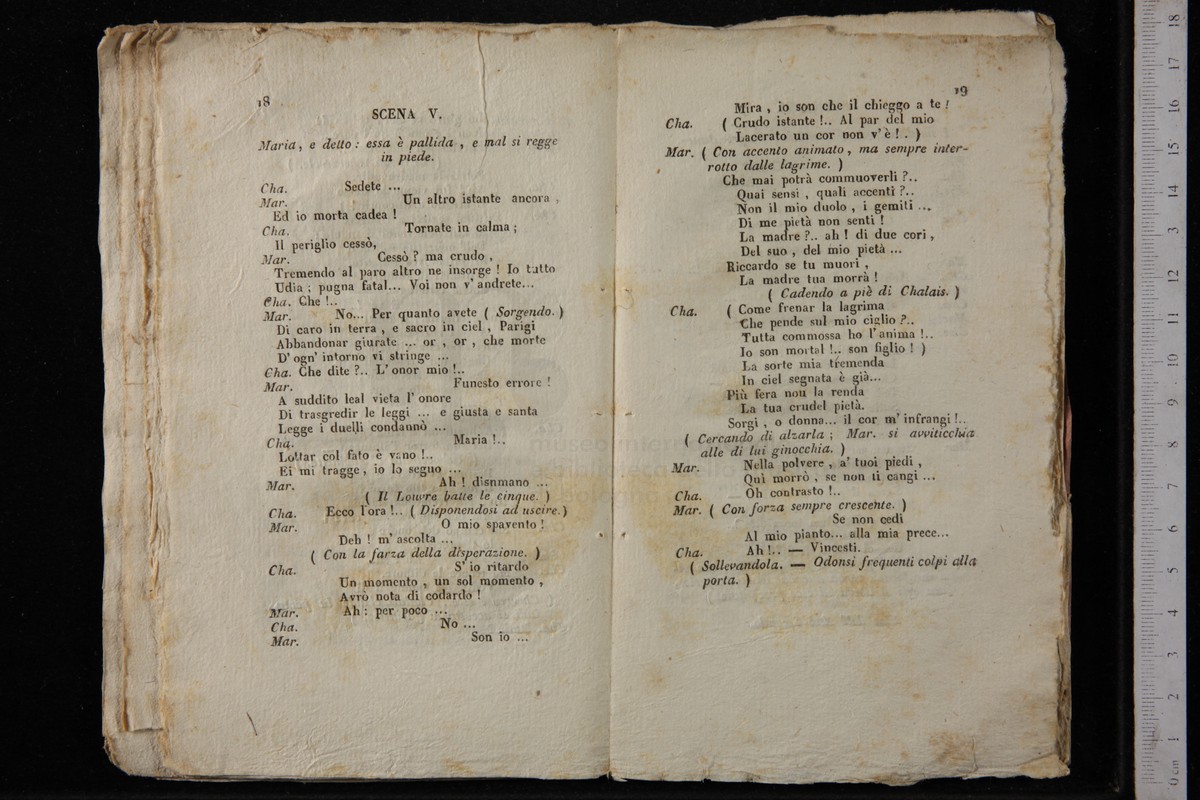 18
SCENA V.
Maria, e detto : essa è pallida , e mal si regge
in piede.
Cha. Sedete ...
Mar. Un altro istante ancora ,
Ed io morta cadea !
Cha. Tornate in calma ;
Il periglio cessò,
Mar. Cessò ? ma crudo ,
Tremendo al paro altro ne insorge ! Io tutto
Udia ; pugna fatal... Voi non v' andrete...
Cha. Che !..
Mar. No... Per quanto avete ( Sorgendo. )
Di caro in terra , e sacro in ciel , Parigi
Abbandonar giurate ... or , or , che morte
D' ogn' intorno vi stringe ...
Cha. Che dite ?.. L' onor mio !..
Mar. Funesto errore !
A suddito leal vieta l' onore
Di trasgredir le leggi ... e giusta e santa
Legge i duelli condannò ...
Cha. Maria !..
Lottar col fato è vano !..
Ei mi tragge , io lo seguo ...
Mar. Ah ! disnmano ...
( Il Louvre batte le cinque. )
Cha. Ecco l'ora !.. ( Disponendosi ad uscire. )
Mar. O mio spavento !
Deh ! m' ascolta ...
( Con la farza della disperazione. )
Cha. S' io ritardo
Un momento , un sol momento ,
Avrò nota di codardo !
Mar. Ah : per poco ...
Cha. No ...
Mar. Son io ...
19
Mira , io son che il chieggo a te !
Cha. ( Crudo istante !.. Al par del mio
Lacerato un cor non v' è ! . )
Mar. ( Con accento animato , ma sempre inter-
rotto dalle lagrime. )
Che mai potrà commuoverli ?..
Quai sensi , quali accenti ?..
Non il mio duolo , i gemiti ...
Di me pietà non senti !
La madre ?.. ah ! di due cori ,
Del suo , del mio pietà ...
Riccardo se tu muori ,
La madre tua morrà !
( Cadendo a piè di Chalais. )
Cha. ( Come frenar la lagrima
Che pende sul mio ciglio ?..
Tutta commossa ho l' anima !..
Io son mortal !.. son figlio ! )
La sorte mia tremenda
In ciel segnata è già...
Più fera nou la renda
La tua crudel pietà.
Sorgi , o donna... il cor m' infrangi !..
( Cercando di alzarla ; Mar. si avviticchia
alle di lui ginocchia. )
Mar. Nella polvere , a' tuoi piedi ,
Qui morrò , se non ti cangi ...
Cha. Oh contrasto !..
Mar. ( Con forza sempre crescente. )
Se non cedi
Al mio pianto... alla mia prece...
Cha. Ah !.. — Vincesti.
( Sollevandola. — Odonsi frequenti colpi alla
porta. )
0 cm 1 2 3 4 5 6 7 8 9 10 11 12 13 14 15 16 17 18